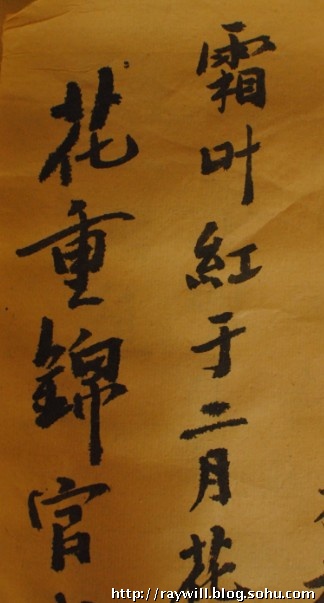 霜叶紅于二月花
花重錦官
http://raywill.blog.sohu.com